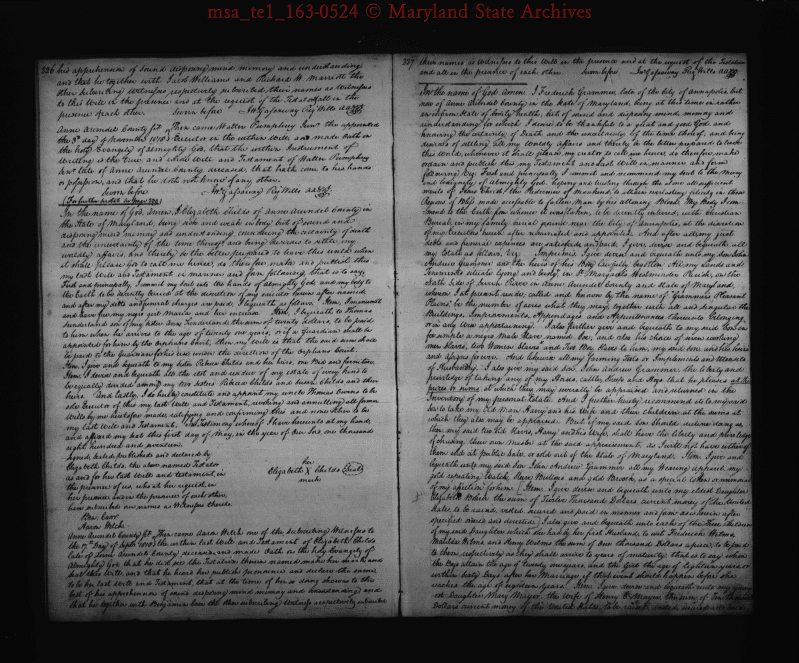 msa_te1_163-0524 © Maryland State Archives
226 his apprehension of sound disposing mind memory and understanding
and that he together with Jacob Williams and Richard H. Marriott the
other subscribing Witnesses respectively subscribed their names as Witnesses
to this Will in the presence and at the request of the Testator & all in the
presence of each other Sworn before Jno Gassaway Reg Wills AA Coy
Anne Arundel County Sct Then came Walter Pumphry Junr the appointed
Executor on the within Will and made Oath on
the holy Evangely of Almighty God, that the within Instrument of
Writing is the true and whole Will and Testament of Walter Pumphry
Senr late of Anne Arundel County deceased, that hath come to his hands
or possession, and that he doth not know of any other.
Sworn before Jno Gassaway Reg Wills AA Coy
In the name of God, Amen, I Elizabeth Childs of Anne Arundel County in
the State of Maryland being sick and weak in body but of sound and
disposing mind memory and understanding considering the certainty of death
and the uncertainty of the time thereof and being desirous to settle my
worldly affairs and thereby be the better prepared to leave this world when
it shall please God to call me hence, do therefore make and publish this
my last Will and Testament in manner and form following, that is to say,
First and principally, I commit my soul into the hands of almighty God and my body to
the Earth to be decently buried at the discretion of my executor herein after named
and after my debts and funeral charges are paid, I bequeath as follows. Item, I
and have free my negro girl and her increase Item, I bequeath to Thomas
Sunderland son of my sister the sum of twenty dollars, to be paid
to him when he arrives to the age of twenty one years, or if a Guardian shall be
appointed for him by the Orphans Court, then my will is that the said sum shall
be paid to the Guardian for his use under the direction of the Orphans Court.
Item, I give and bequeath to my sister Childs and her heirs, one Bed and furniture
Item, I devise and bequeath all the rest and residue of my estate of every kind to
be equally divided among my two sisters Childs and Susan Childs and their
heirs And lastly, I do hereby constitute and appoint my uncle Thomas to be
sole Executor of this my last Will and Testament, revoking and annulling all former
Wills by me heretofore made, ratifying and confirming this and none other to be
my last Will and Testament, In Testimony whereof I have hereunto set my hand,
and affixed my seal this first day of May, in the year of our Lord, one thousand
eight hundred and
Signed, sealed published and declared by
Elizabeth Childs, the above named Testator
as and for her last Will and testament in
the presence of us, who at her request in
her presence and in the presence of each other,
have subscribed our names as Witnesses thereto.
her
Elizabeth X Childs Seal
mark
Ben. Carr
Aaron Welch
Anne Arundel County Sct Then came Aaron Welch one of the subscribing Witnesses to
the within last Will and Testament of Elizabeth Childs
late of Anne Arundel County deceased, and made Oath on the holy Evangely of
Almighty God that he did see the Testatrix therein named make her mark and
seal this Will, and that he heard her publish pronounce and declare the same
to be her last Will and Testament, that at the time of her so doing she was to the
best of his apprehension of sound disposing mind memory and understanding and
that he together with Benjamin Carr the other subscribing Witness respectively subscribed
227 their names as Witnesses to this Will in the presence and at the request of the Testatrix
and all in the presence of each other Sworn before Jno Gassaway Reg Wills AA Coy
In the name of God Amen. I Frederick Grammer late of the City of Annapolis, but
now of Anne Arundel County in the State of Maryland, being at this time in rather
an infirm state of bodily health, but of sound and disposing mind, memory and
understanding, for which I desire to be thankful to a great and good God, and
knowing the certainty of Death and the uncertainty of the time thereof, and being
desirous of settling all my Worldly affairs and thereby be the better prepared to leave
this World, whenever it shall please my creator to call me hence; do therefore make
ordain and publish this my Testament and Last Will in manner and form
following Viz: First and principally I commit and recommend my soul to the Mercy
and benignity of Almighty God, hoping and trusting through the alone all sufficient
merits of Jesus Christ, the Redeemer of Mankind
Regions of Bliss made acceptable to fallen Man by his attoning Blood. My Body I com
mend to the Earth from whence it was taken, to be decently interred, with Christian
Burial in my family burial ground near the City of Annapolis, at the discretion
of my Executors herein after nominated and appointed. And after all my just
debts and funeral expences are satisfied and paid, I give devise and bequeath all
my Estate as follows, Viz: Imprimis I give devise and bequeath unto my Son John
Andrew Grammer and the heirs of his Body lawfully begotten All my Lands and
Tenements situate lying and being in St. Margarets Westminster Parish, on the
North side of Severn River in Anne Arundel County and State of Maryland,
whereon I at present reside, called and known by the name of Grammers Pleasant
Plains be the number of acres what they may, together with all and singular the
Buildings, Improvements, Appendages and Appurtenances thereunto belonging
or in any wise appertaining. I also further give and bequeath to my said Son
a negro Male Slave, named Joe, and also his choice of seven working
men Slaves, two Women Slaves and two Boy Slaves to him, my said Son, and his heirs
and assigns forever. And likewise all my farming Tools or Implements and Utensils
of Husbandry. I also give my said Son, John Andrew Grammer, the liberty and
priviledge of taking any of my Stock, cattle, Sheep and Hogs that he pleases
at which they may severally be appraised and returned in the
Inventory of my personal Estate. And I further hereby recommend it to my said
Son to take my Old Man Harry and his Wife and their children at the sums at
which they also may be appraised. But if my said Son should decline doing so,
then my said two Old Slaves, Harry and his Wife, shall have the liberty and priviledge
of chusing their own Master at the said appraisement, as I will not have either of
them sold at public sale, or sold out of the State of Maryland. Item I give and
bequeath unto my said Son John Andrew Grammer all my Wearing apparel, my
gold repeating Watch, Shoe Buckles and gold Brooch, as a special token
of my affection for him. Item I give devise and bequeath unto my eldest Daughter
Elizabeth Welch the sum of Twelve Thousand Dollars current money of the United
States, to be raised, vested secured and paid in manner and form
specified I also give and bequeath unto each of the Three Children
of my said Daughter which she had by her first Husband, to wit Frederick
and Henry the sum of One Thousand Dollars apiece, to be paid
to them respectively as they shall arrive to years of maturity, that is to say when
the Boys attain the age of Twenty one years, and the Girl the age of Eighteen years, or
within sixty Days after her Marriage, if that event should happen before she
reaches the age of eighteen years. Item I give devise and bequeath unto my
est Daughter Mary Mayer, the Wife of Henry C. Mayer the sum of Ten Thousand
Dollars current money of the United States, to be raised, vested secured and paid